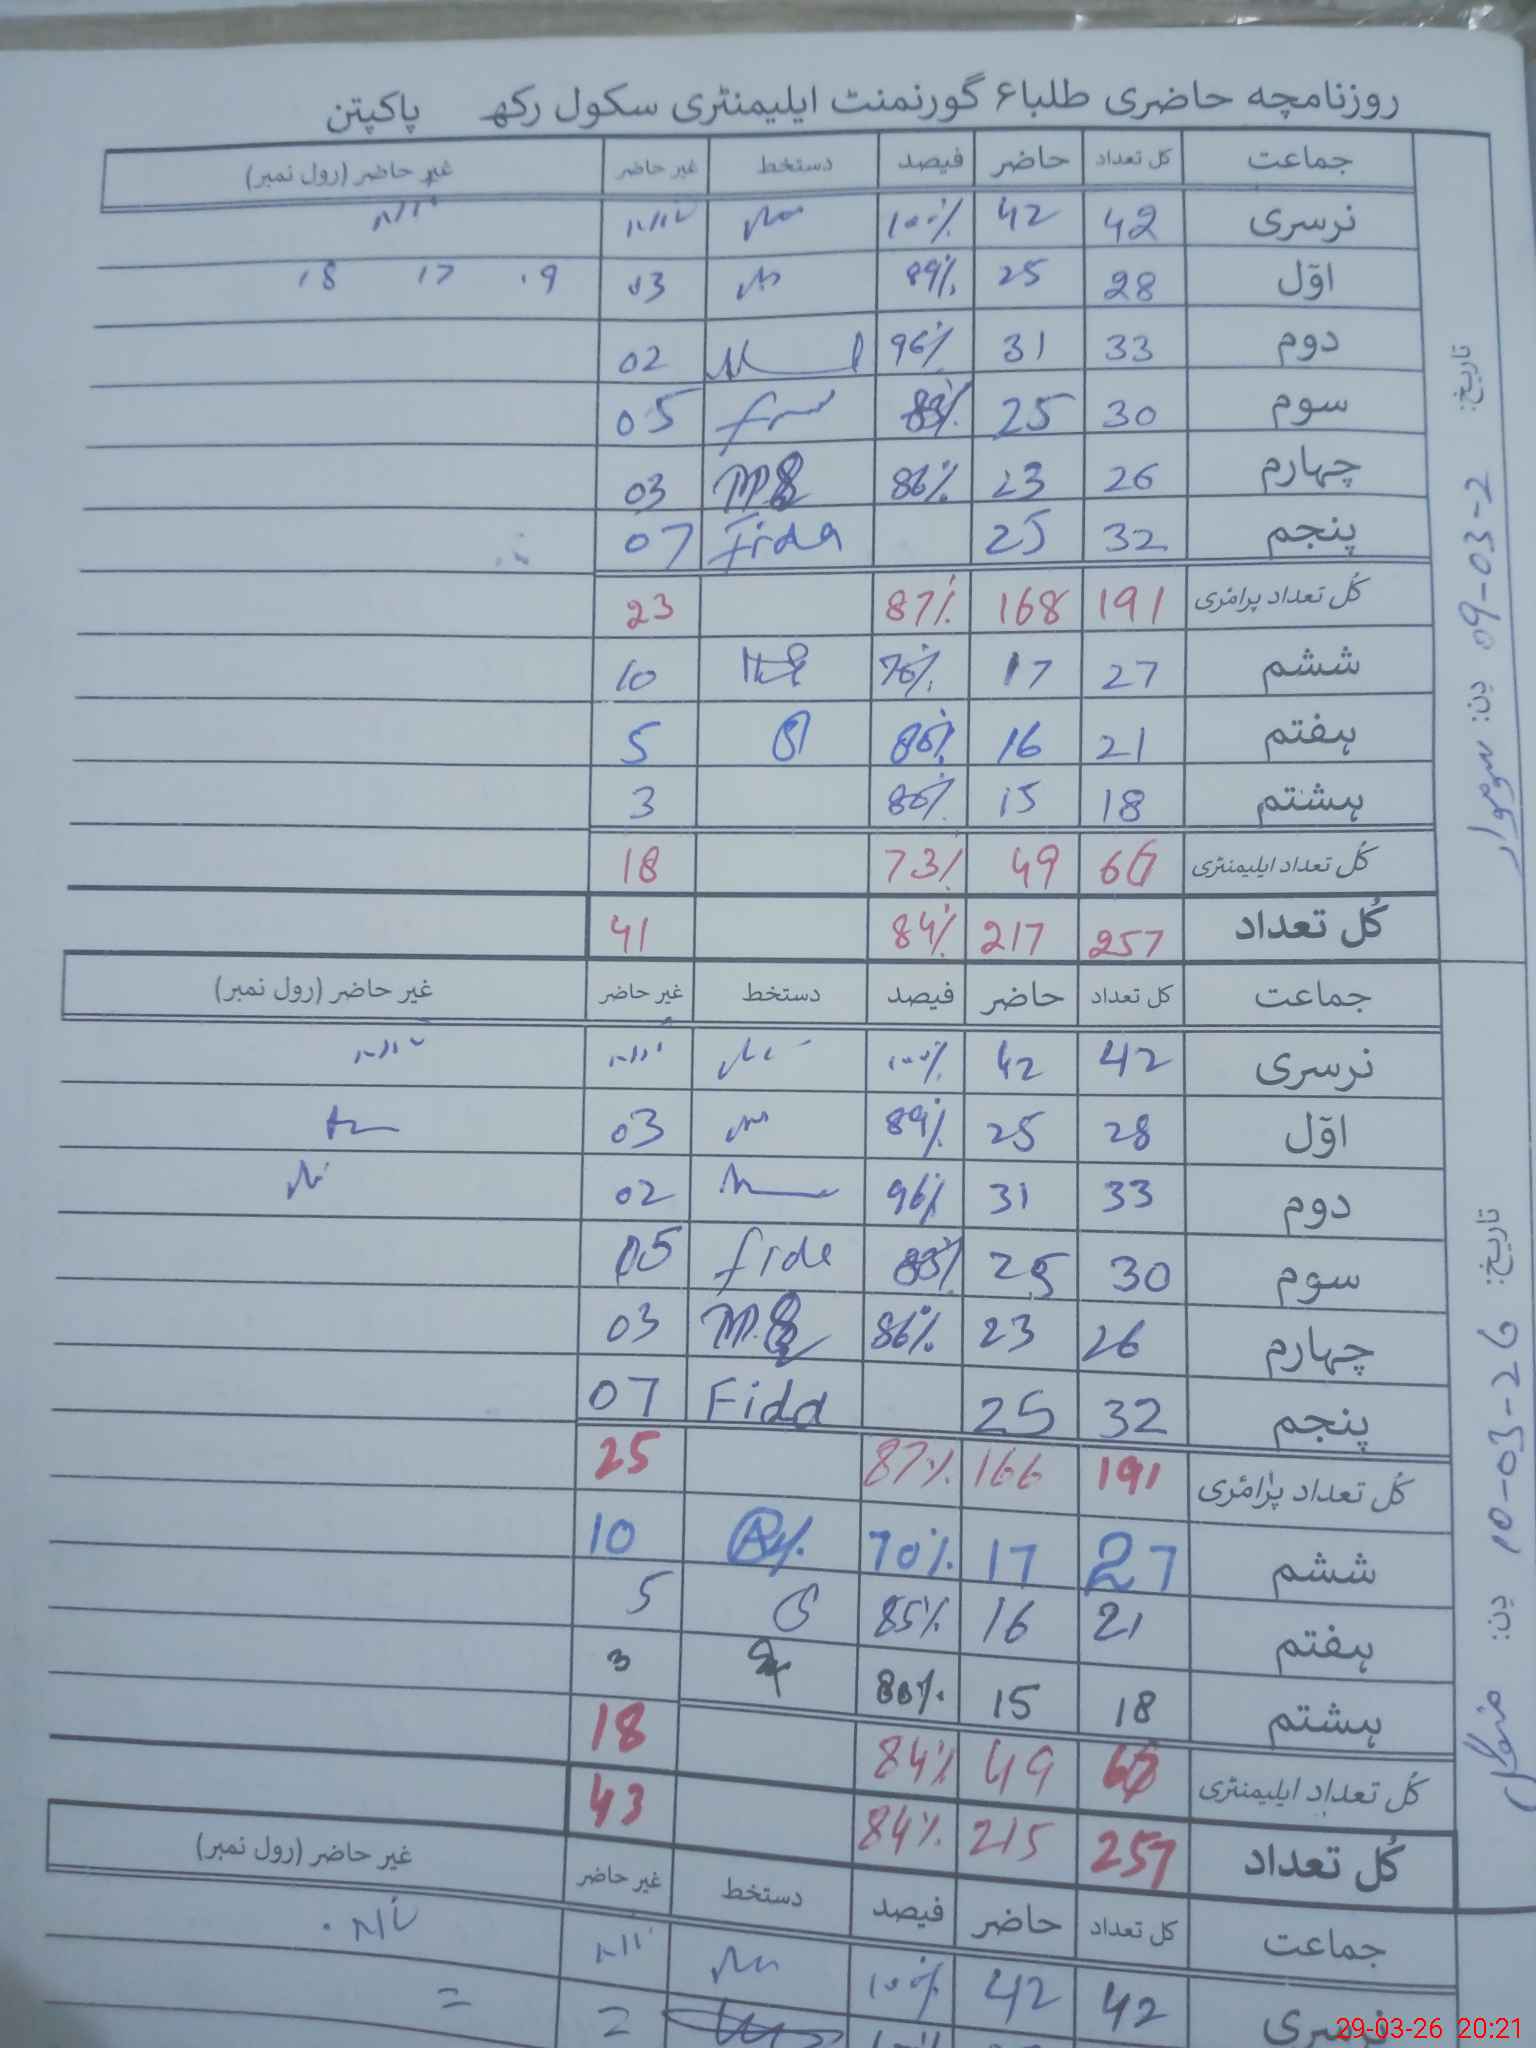 روزنامچہ حاضری طلباء گورنمنٹ ایلیمنٹری سکول رکھ پاکپتن
جماعت کل تعداد حاضر فیصد دستخط غیر حاضر غیر حاضر (رول نمبر)
نرسری 42 42 100%
اوّل 28 25 89% 03 09 17 18
دوم 33 31 96% 02
سوم 30 25 83% 05
چہارم 26 23 86% 03
پنجم 32 25 Fida 07
کُل تعداد پرائمری 191 168 87% 23
ششم 27 17 10
ہفتم 21 16 5
ہشتم 18 15 3
کُل تعداد ایلیمنٹری 49 73% 18
کُل تعداد 257 217 84% 41
تاریخ: 09-03-2 دن: سوموار
جماعت کل تعداد حاضر فیصد دستخط غیر حاضر غیر حاضر (رول نمبر)
نرسری 42 42 100%
اوّل 28 25 89% 03
دوم 33 31 96% 02
سوم 30 25 83% 05
چہارم 26 23 86% 03
پنجم 32 25 Fida 07
کُل تعداد پرائمری 191 166 87% 25
ششم 27 17 70% 10
ہفتم 21 16 85% 5
ہشتم 18 15 80% 3
کُل تعداد ایلیمنٹری 49 84% 18
کُل تعداد 257 215 84% 43
تاریخ: 10-03-26 دن: منگل
جماعت کل تعداد حاضر فیصد دستخط غیر حاضر غیر حاضر (رول نمبر)
نرسری 42 42 100%
2
29-03-26 20:21